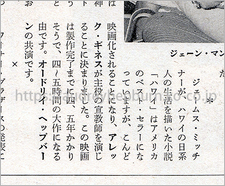 ジェーン・マン
ジェームス・ミッチ
ナーが、ハワイの日系
人の生活を描いた小説
「ハワイ」はアメリカ
のベスト・セラーにな
っていますが、こんど
映画化されることになり、アレッ
ク・ギネスが主役の宣教師を演じ
この映画
は製作完了までに四、五年かか
そうで、四、五時間の大作になる
由です。オードリー・ヘップバー
ンの共演です。